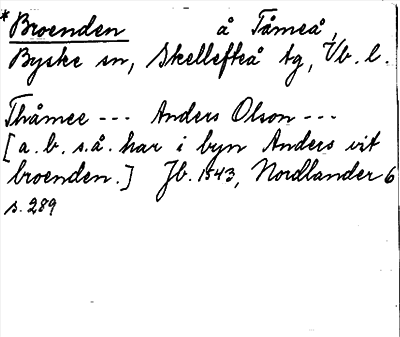 *Broenden å Tåmeå,
Byske sn, Skellefteå tg, Vb. l.
Thåmee --- Anders Olson ---
[a. b. s.å. har i byn Anders vit
broenden.] Jb. 1543, Nordlander 6
s. 289